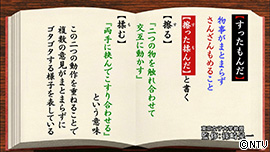 【すったもんだ】
物事がまとまらず
さんざんもめること
【擦った揉んだ】と書く
【擦る】
「二つの物を触れ合わせて
交互に動かす」
【揉む】
「両手に挟んでこすり合わせる」
という意味
この二つの動作を重ねることで
複数の意見がまとまらずに
ゴタゴタする様子を表している
©NTV